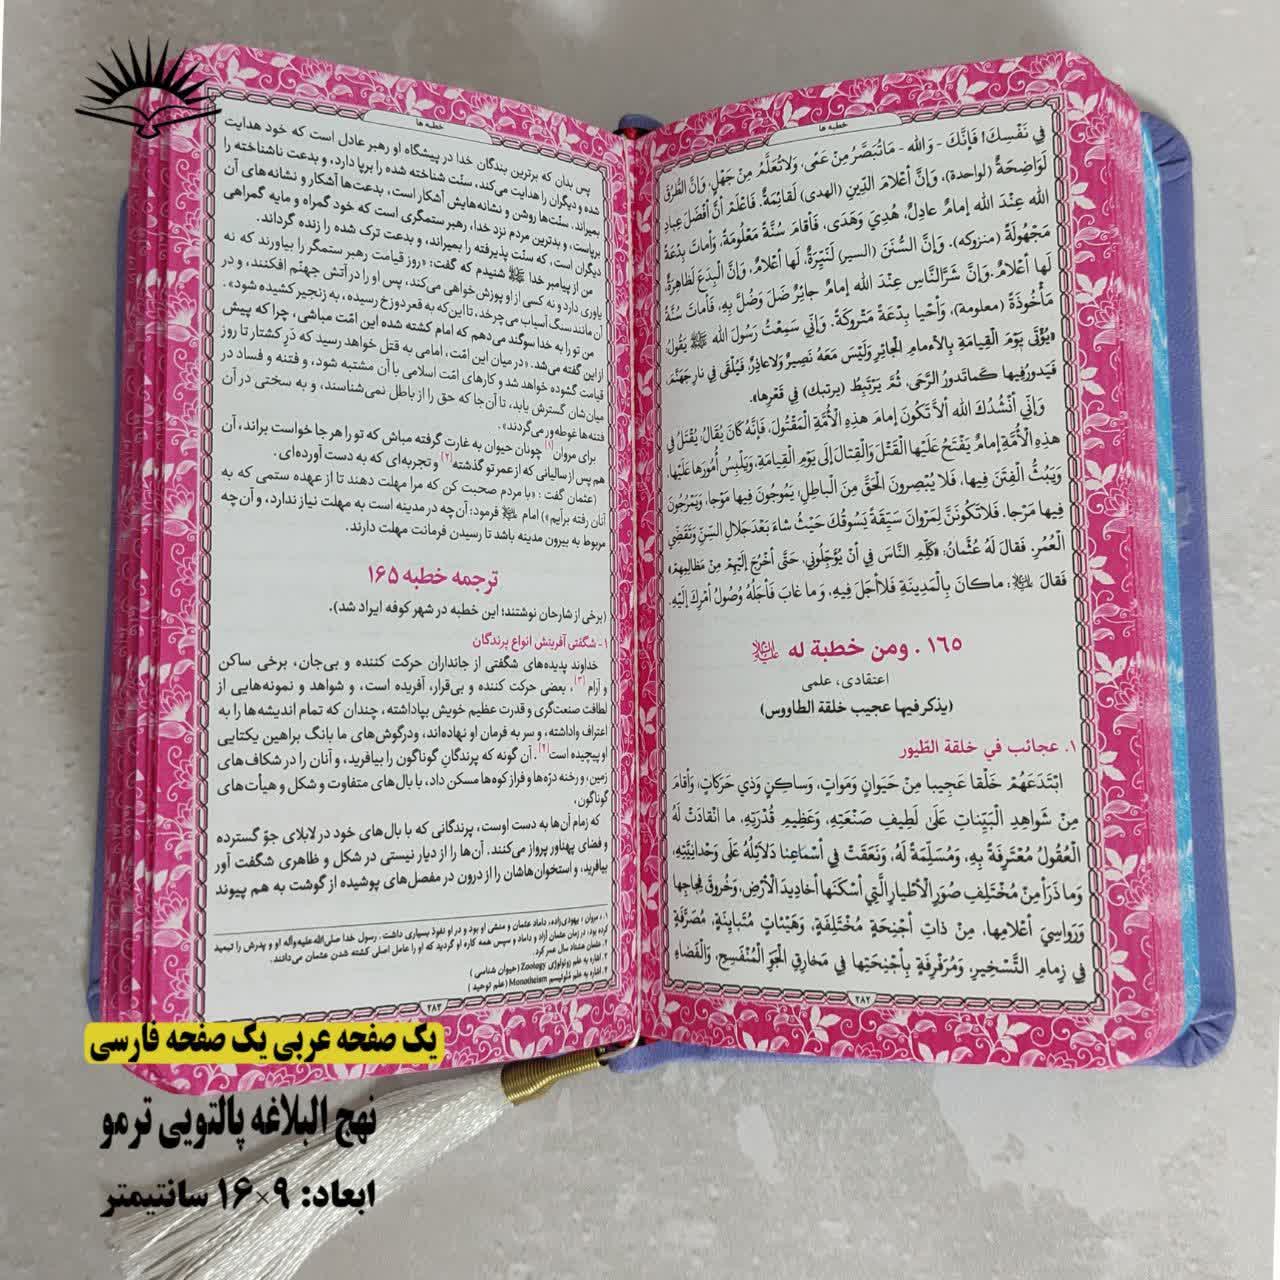 خطبه ها
في نَفْسِكَ! فَإِنَّكَ - وَاللهِ - مَا تُبَصَّرُ مِنْ عَمًى، وَلَا تُعَلَّمُ مِنْ جَهْلٍ، وَإِنَّ الطُّرُقَ
لَوَاضِحَةٌ (لواحدة)، وَإِنَّ أَعْلَامَ الدِّينِ (الهدى) لَقَائِمَةٌ. فَاعْلَمْ أَنَّ أَفْضَلَ عِبَادِ
اللهِ عِنْدَ اللهِ إِمَامٌ عَادِلٌ، هُدِيَ وَهَدَى، فَأَقَامَ سُنَّةً مَعْلُومَةً، وَأَمَاتَ بِدْعَةً
مَجْهُولَةً (متروكه). وَإِنَّ السُّنَنَ (السير) لَنَيِّرَةٌ، لَهَا أَعْلَامٌ، وَإِنَّ الْبِدَعَ لَظَاهِرَةٌ،
لَهَا أَعْلَامٌ. وَإِنَّ شَرَّ النَّاسِ عِنْدَ اللهِ إِمَامٌ جَائِرٌ ضَلَّ وَضُلَّ بِهِ، فَأَمَاتَ سُنَّةً
مَأْخُوذَةً (معلومة)، وَأَحْيَا بِدْعَةً مَتْرُوكَةً. وَإِنِّي سَمِعْتُ رَسُولَ اللهِ ﷺ يَقُولُ:
«يُؤْتَى يَوْمَ الْقِيَامَةِ بِالْإِمَامِ الْجَائِرِ وَلَيْسَ مَعَهُ نَصِيرٌ وَلَا عَاذِرٌ، فَيُلْقَى فِي نَارِ جَهَنَّمَ،
فَيَدُورُ فِيهَا كَمَا تَدُورُ الرَّحَى، ثُمَّ يَرْتَبِطُ (يرتبك) فِي قَعْرِهَا».
وَإِنِّي أَنْشُدُكَ اللهَ أَلَّا تَكُونَ إِمَامَ هذِهِ الْأُمَّةِ الْمَقْتُولَ، فَإِنَّهُ كَانَ يُقَالُ: يُقْتَلُ فِي
هذِهِ الْأُمَّةِ إِمَامٌ يَفْتَحُ عَلَيْهَا الْقَتْلَ وَالْقِتَالَ إِلَى يَوْمِ الْقِيَامَةِ، وَيَلْبِسُ أُمُورَهَا عَلَيْهَا،
وَيَبُثُّ الْفِتَنَ فِيهَا، فَلَا يُبْصِرُونَ الْحَقَّ مِنَ الْبَاطِلِ، يَمُوجُونَ فِيهَا مَوْجًا، وَيَمْرُجُونَ
فِيهَا مَرْجًا. فَلَا تَكُونَنَّ لِمَرْوَانَ سَيِّقَةً يَسُوقُكَ حَيْثُ شَاءَ بَعْدَ جَلَالِ السِّنِّ وَتَقَضِّي
الْعُمُرِ. فَقَالَ لَهُ عُثْمَانُ: «كَلِّمِ النَّاسَ فِي أَنْ يُؤَجِّلُونِي، حَتَّى أَخْرُجَ إِلَيْهِمْ مِنْ مَظَالِمِهِمْ»
فَقَالَ ﵇: مَا كَانَ بِالْمَدِينَةِ فَلَا أَجَلَ فِيهِ، وَمَا غَابَ فَأَجَلُهُ وُصُولُ أَمْرِكَ إِلَيْهِ.
۱۶۵ . ومن خطبة له ﵇
اعتقادی، علمی
(يذكر فيها عجيب خلقة الطاووس)
۱. عجائب في خلقة الطّيور
ابْتَدَعَهُمْ خَلْقًا عَجِيبًا مِنْ حَيَوَانٍ وَمَوَاتٍ، وَسَاكِنٍ وَذِي حَرَكَاتٍ، وَأَقَامَ
مِنْ شَوَاهِدِ الْبَيِّنَاتِ عَلَى لَطِيفِ صَنْعَتِهِ، وَعَظِيمِ قُدْرَتِهِ، مَا انْقَادَتْ لَهُ
الْعُقُولُ مُعْتَرِفَةً بِهِ، وَمُسَلِّمَةً لَهُ، وَنَعَقَتْ فِي أَسْمَاعِنَا دَلَائِلُهُ عَلَى وَحْدَانِيَّتِهِ،
وَمَا ذَرَأَ مِنْ مُخْتَلِفِ صُوَرِ الْأَطْيَارِ الَّتِي أَسْكَنَهَا أَخَادِيدَ الْأَرْضِ، وَخُرُوقَ فِجَاجِهَا
وَرَوَاسِيَ أَعْلَامِهَا، مِنْ ذَاتِ أَجْنِحَةٍ مُخْتَلِفَةٍ، وَهَيْئَاتٍ مُتَبَايِنَةٍ، مُصَرَّفَةٍ
فِي زِمَامِ التَّسْخِيرِ، وَمُرَفْرِفَةٍ بِأَجْنِحَتِهَا فِي مَخَارِقِ الْجَوِّ الْمُنْفَسِحِ، وَالْفَضَاءِ
۲۸۲
خطبه ها
پس بدان که برترین بندگان خدا در پیشگاه او رهبر عادل است که خود هدایت
شده و دیگران را هدایت می‌کند، سنّت شناخته شده را برپا دارد، و بدعت ناشناخته را
بمیراند. سنّت‌ها روشن و نشانه‌هایش آشکار است، بدعت‌ها آشکار و نشانه‌های آن
برپاست، و بدترین مردم نزد خدا، رهبر ستمگری است که خود گمراه و مایه گمراهی
دیگران است، که سنّت پذیرفته را بمیراند، و بدعت ترک شده را زنده گرداند.
من از پیامبر خدا ﷺ شنیدم که گفت: «روز قیامت رهبر ستمگر را بیاورند که نه
یاوری دارد و نه کسی از او پوزش خواهی می‌کند، پس او را در آتش جهنّم افکنند، و در
آن مانند سنگ آسیاب می‌چرخد، تا این‌که به قعر دوزخ رسیده، به زنجیر کشیده شود».
من تو را به خدا سوگند می‌دهم که امام کشته شده این امّت مباشی، چرا که پیش
از این گفته می‌شد. «در میان این امّت، امامی به قتل خواهد رسید که دَرِ کشتار تا روز
قیامت گشوده خواهد شد و کارهای امّت اسلامی با آن مشتبه شود، و فتنه و فساد در
میان‌شان گسترش یابد، تا آن‌جا که حق را از باطل نمی‌شناسند، و به سختی در آن
فتنه‌ها غوطه‌ور می‌گردند».
برای مروان[۱] چونان حیوان به غارت گرفته مباش که تو را هر جا خواست براند، آن
هم پس از سالیانی که از عمر تو گذشته[۲] و تجربه‌ای که به دست آورده‌ای.
(عثمان گفت : «با مردم صحبت کن که مرا مهلت دهند تا از عهده ستمی که به
آنان رفته برآیم») امام ﵇ فرمود: آن‌چه در مدینه است به مهلت نیاز ندارد، و آن‌چه
مربوط به بیرون مدینه باشد تا رسیدن فرمانت مهلت دارند.
ترجمه خطبه ۱۶۵
(برخی از شارحان نوشتند: این خطبه در شهر کوفه ایراد شد).
۱- شگفتی آفرینش انواع پرندگان
خداوند پدیده‌های شگفتی از جانداران حرکت کننده و بی‌جان، برخی ساکن
و آرام[۳]، بعضی حرکت کننده و بی‌قرار، آفریده است، و شواهد و نمونه‌هایی از
لطافت صنعت‌گری و قدرت عظیم خویش بپاداشته، چندان که تمام اندیشه‌ها را به
اعتراف واداشته، و سر به فرمان او نهاده‌اند، و در گوش‌های ما بانگ براهین یکتایی
او پیچیده است[۴]. آن گونه که پرندگانِ گوناگون را بیافرید، و آنان را در شکاف‌های
زمین، و رخنه درّه‌ها و فراز کوه‌ها مسکن داد، با بال‌های متفاوت و شکل و هیأت‌های
گوناگون،
که زمام آن‌ها به دست اوست، پرندگانی که با بال‌های خود در لابلای جوّ گسترده
و فضای پهناور پرواز می‌کنند. آن‌ها را از دیار نیستی در شکل و ظاهری شگفت آور
بیافرید، و استخوان‌هاشان را از درون در مفصل‌های پوشیده از گوشت به هم پیوند
۱. مروان : یهودی‌زاده، داماد عثمان و منشی او بود و در او نفوذ بسیاری داشت. رسول خدا صلی‌الله‌علیه‌وآله او و پدرش را تبعید
کرده بود، در زمان عثمان آزاد و داماد و سپس همه کاره او گردید که او را عامل اصلی کشته شدن عثمان می‌دانند.
۲. عثمان هشتاد سال عمر کرد.
۳. اشاره به علم زوئولوژی Zoology (حیوان شناسی )
۴. اشاره به علم مُنوتیسم Monotheism (علم توحید )
۲۸۳
یک صفحه عربی یک صفحه فارسی
نهج البلاغه پالتویی ترمو
ابعاد: ۹×۱۶ سانتیمتر